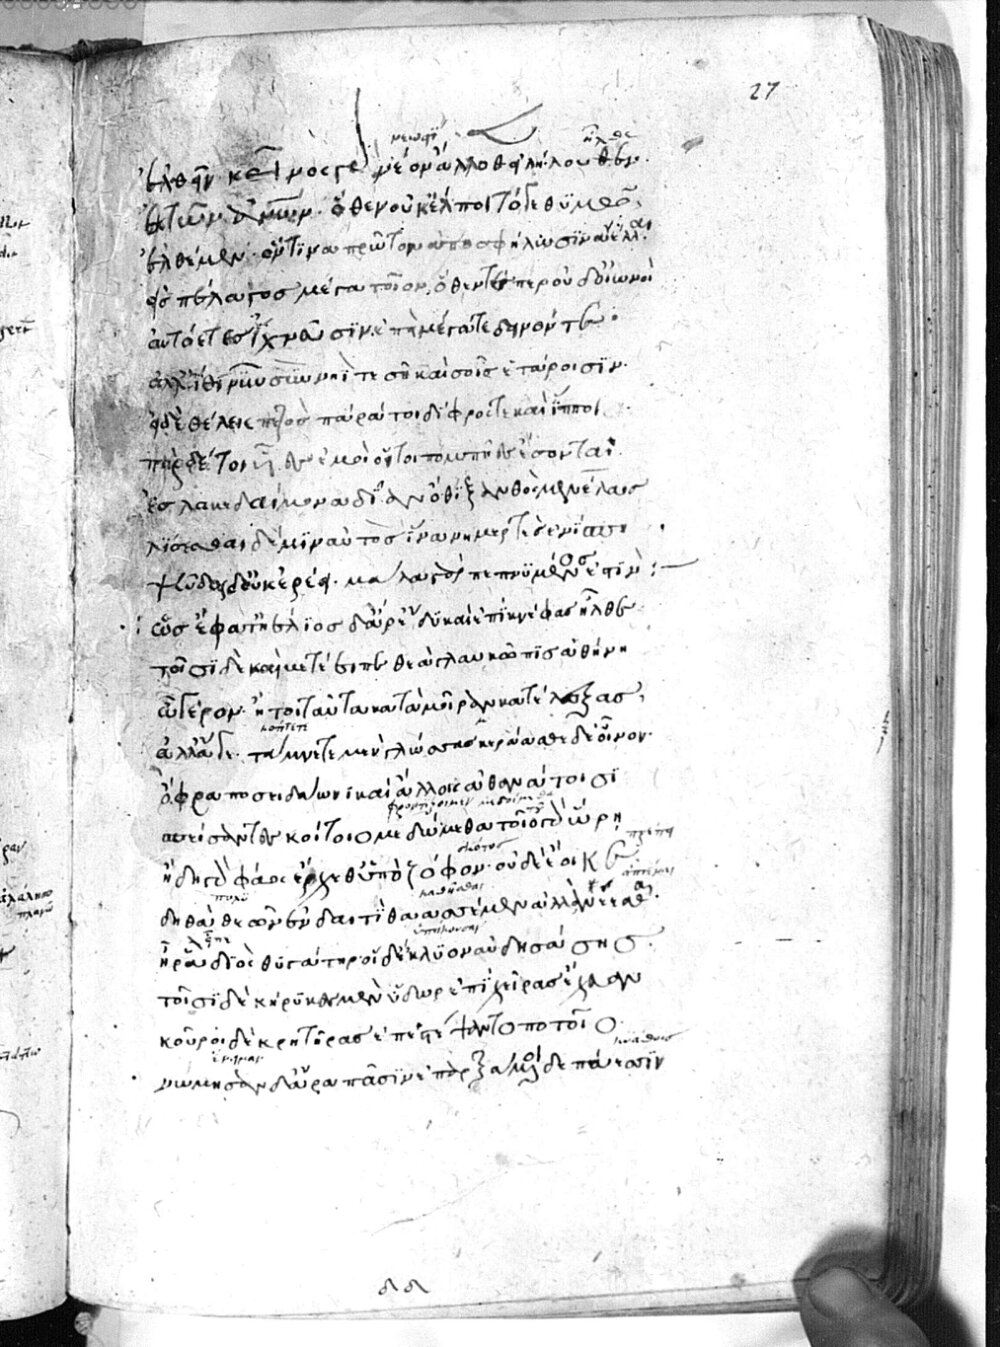 27
νεωστὶ ἦλθε
ἐλθεῖν κεῖνος γὰρ νέον ἄλλοθεν εἰλήλουθεν
ἐκ τῶν ἀνθρώπων ὅθεν οὐκ ἔλποιτό γε θυμῶ
ἐλθέμεν ὅντινα πρῶτον ἀποσφήλωσιν ἄελλαι
ἐς πέλαγος μέγα τοῖον ὅθεν τέ περ οὐδ' οἰωνοὶ
αὐτόετες οἰχνεῦσιν ἐπεὶ μέγα τε δεινόν τε
ἀλλ' ἴθι νῦν σὺν νηί τε σῇ καὶ σοῖς ἑτάροισιν
εἰ δ' ἐθέλεις πεζὸς πάρα τοι δίφρος τε καὶ ἵπποι
πὰρ δέ τοι υἷες ἐμοὶ οἵ τοι πομπῆες ἔσονται
ἐς λακεδαίμονα δῖαν ὅθι ξανθὸς μενέλαος
λίσσεσθαι δέ μιν αὐτὸς ἵνα νημερτὲς ἐνίσπη
ψεῦδος δ' οὐκ ἐρέει μάλα γὰρ πεπνυμένος ἐστίν :
ὣς ἔφατ' ἠέλιος δ' ἄρ' ἔδυ καὶ ἐπὶ κνέφας ἦλθε
τοῖσι δὲ καὶ μετέειπε θεὰ γλαυκῶπις ἀθήνη
ὦ γέρον ἤτοι ταῦτα κατὰ μοῖραν κατέλεξας
κόπτετε
ἀλλ' ἄγε τάμνετε μὲν γλώσσας κεράασθε δὲ οἶνον
ὄφρα ποσειδάωνι καὶ ἄλλοις ἀθανάτοισι
φροντίζοιμεν
σπείσαντες κοίτοιο μεδώμεθα τοῖο γὰρ ὥρη
σκότος πρέπει
ἤδη γὰρ φάος οἴχεθ' ὑπὸ ζόφον οὐδὲ ἔοικε
πολὺ καθῆσθαι
δηθὰ θεῶν ἐν δαιτὶ θαασσέμεν ἀλλὰ νέεσθαι
ὑπήκουσαν
ἦ ῥα διὸς θυγάτηρ οἱ δ' ἔκλυον αὐδησάσης
τοῖσι δὲ κήρυκες μὲν ὕδωρ ἐπὶ χεῖρας ἔχευαν
κοῦροι δὲ κρητῆρας ἐπεστέψαντο ποτοῖο
νώμησαν δ' ἄρα πᾶσιν ἐπαρξάμενοι δεπάεσσιν